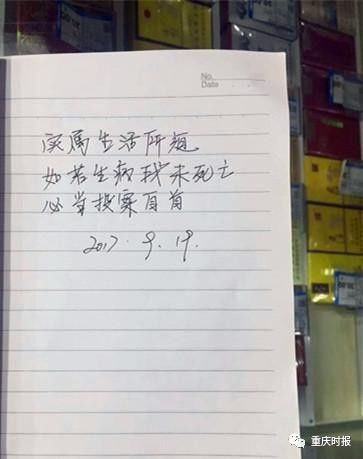 No.
Date
实属生活所迫
如若生病我未死亡
必当投案自首
2017.9.19.
重庆时报